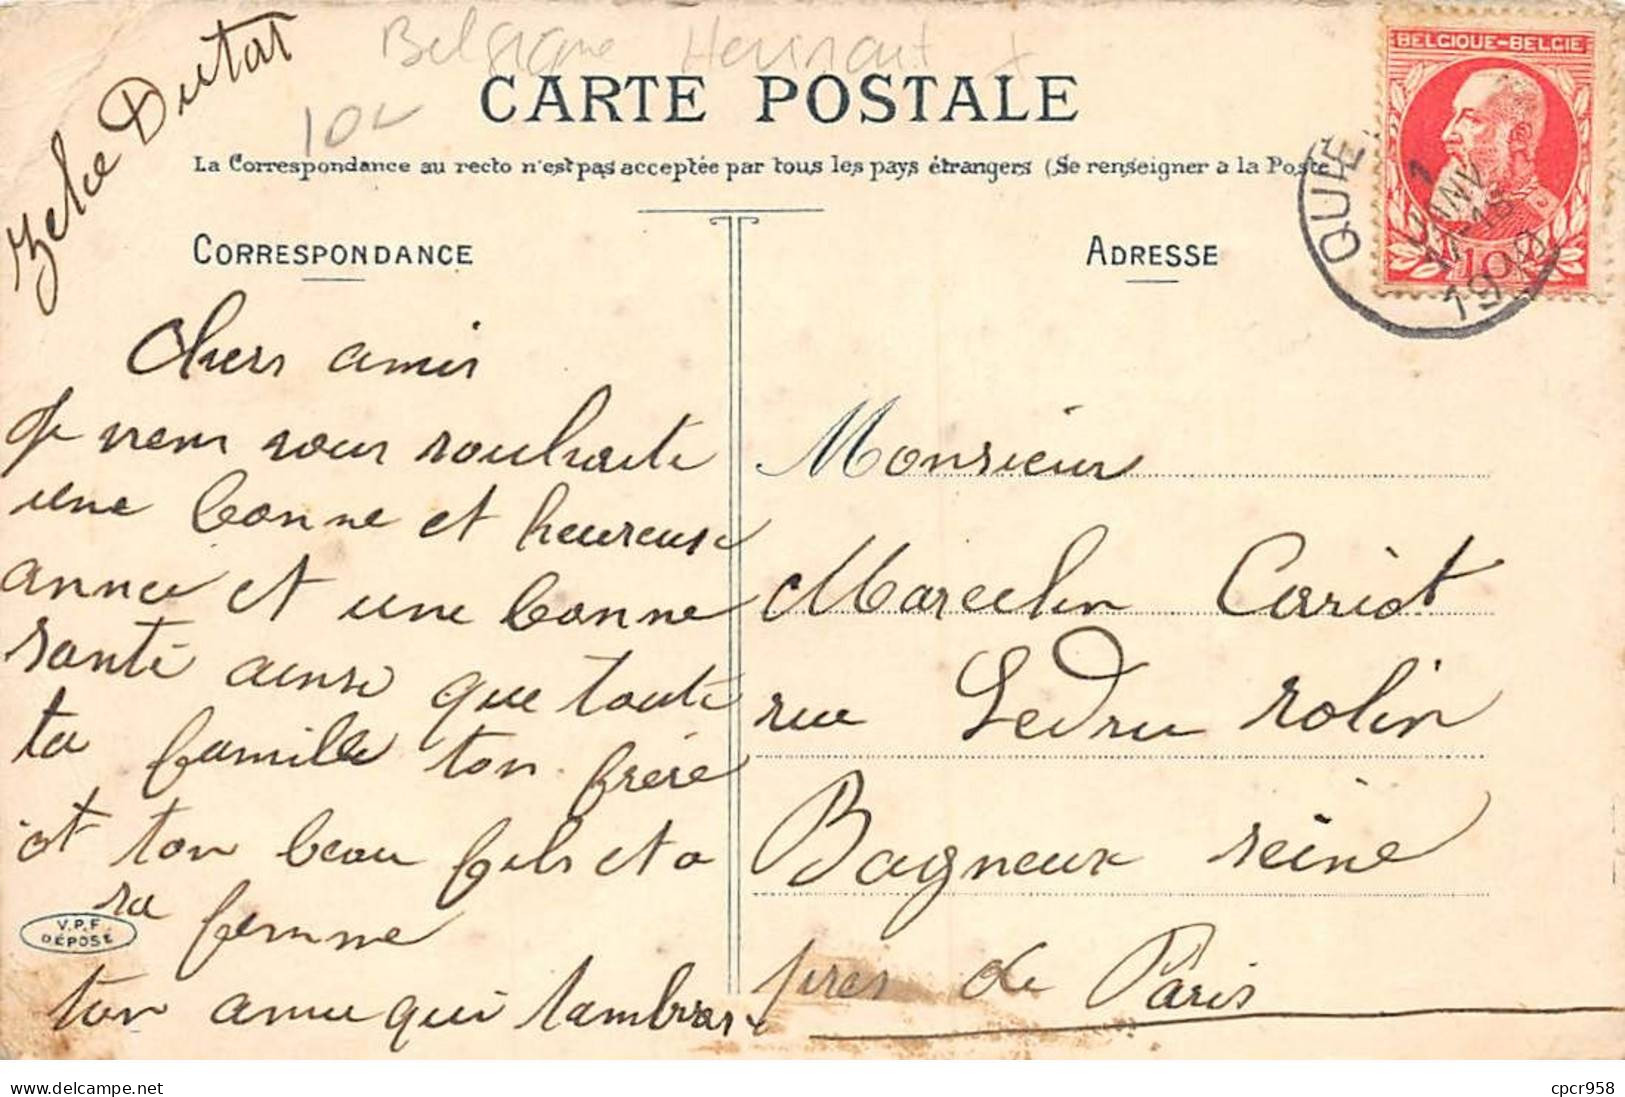 Belgique Hainaut
10
Zelie Dutat
CARTE POSTALE
La Correspondance au recto n'est pas acceptée par tous les pays étrangers (Se renseigner a la Poste
CORRESPONDANCE
ADRESSE
BELGIQUE-BELGIE
10
QUIE
1
JANV
17-18
190
Chers amis
Je viens vous souhaité
une bonne et heureuse
année et une bonne
santé ainsi que toute
ta famille ton frère
et ton beau fils et a
sa femme
ton amie qui t'ambrasse
V.P.F.
DÉPOSÉ
Monsieur
Marcelin Corriot
rue Ledru rolin
Bagneux seine
pres de Paris
cpcr958